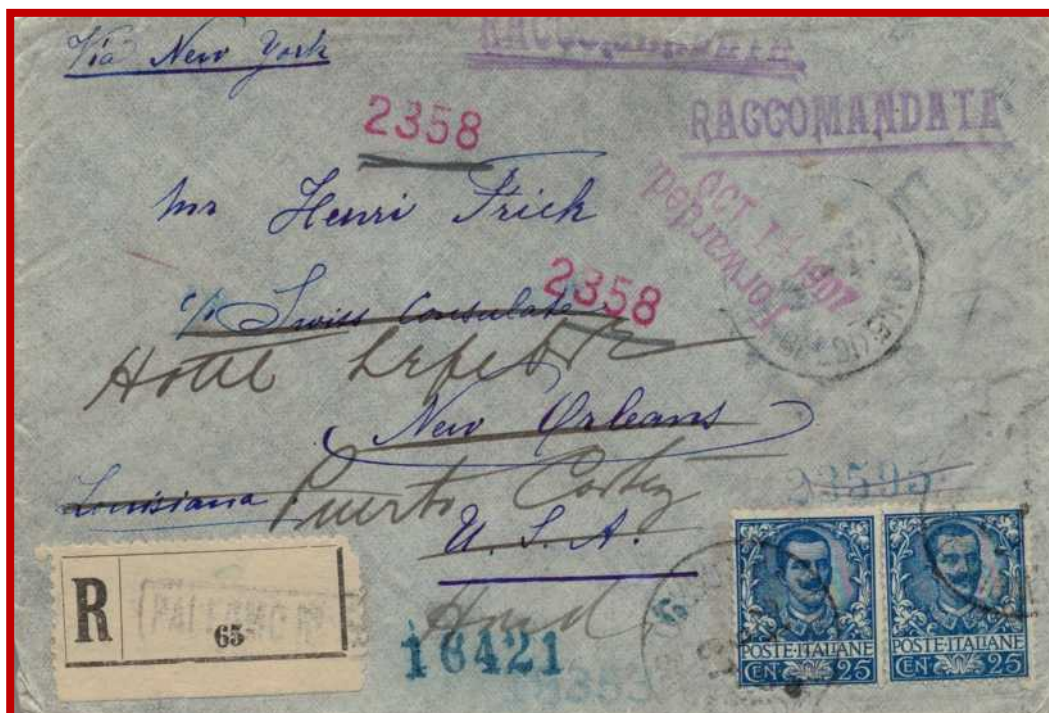 Via New York
RACCOMANDATA
RACCOMANDATA
2358
Mr Henri Frick
OCT 14 1907
Forwarded
2358
c/o Swiss Consulate
Hotel
New Orleans
Louisiana
Puerto Cortez
U.S.A.
R
65
Hond
16421
POSTE·ITALIANE
CEN 25
POSTE·ITALIANE
CEN 25